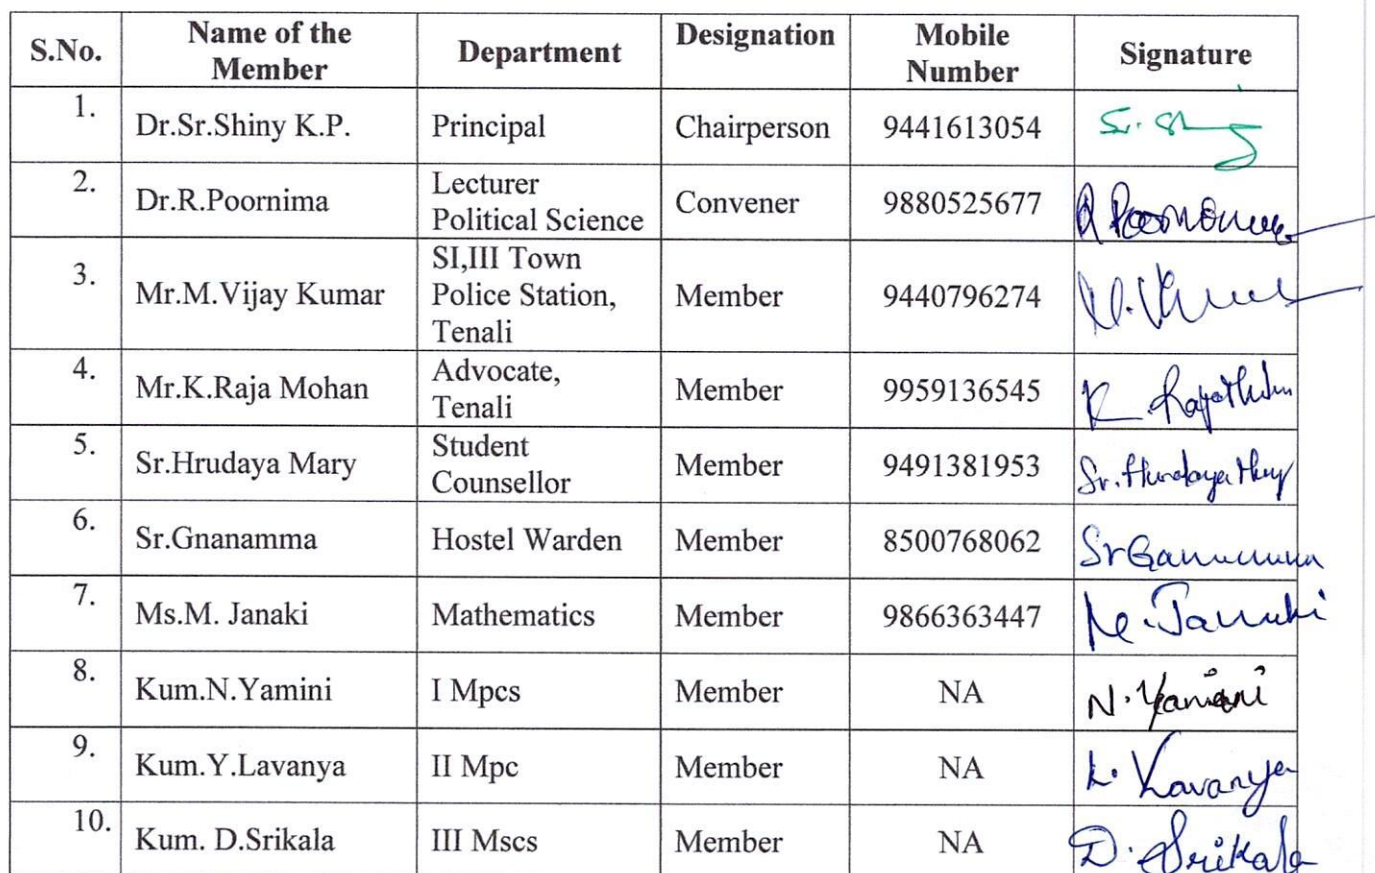 S.No. Name of the Member Department Designation Mobile Number Signature
1. Dr.Sr.Shiny K.P. Principal Chairperson 9441613054 Sr. Shiny
2. Dr.R.Poornima Lecturer Political Science Convener 9880525677 R Poornima
3. Mr.M.Vijay Kumar SI,III Town Police Station, Tenali Member 9440796274
4. Mr.K.Raja Mohan Advocate, Tenali Member 9959136545
5. Sr.Hrudaya Mary Student Counsellor Member 9491381953 Sr. Hrudaya Mary
6. Sr.Gnanamma Hostel Warden Member 8500768062
7. Ms.M. Janaki Mathematics Member 9866363447 M. Janaki
8. Kum.N.Yamini I Mpcs Member NA N. Yamini
9. Kum.Y.Lavanya II Mpc Member NA
10. Kum. D.Srikala III Mscs Member NA D. Srikala